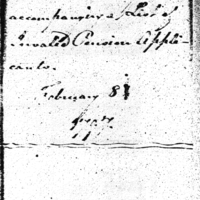 accompanying a List of
Invalid Pension Appli-
cants.
February 8